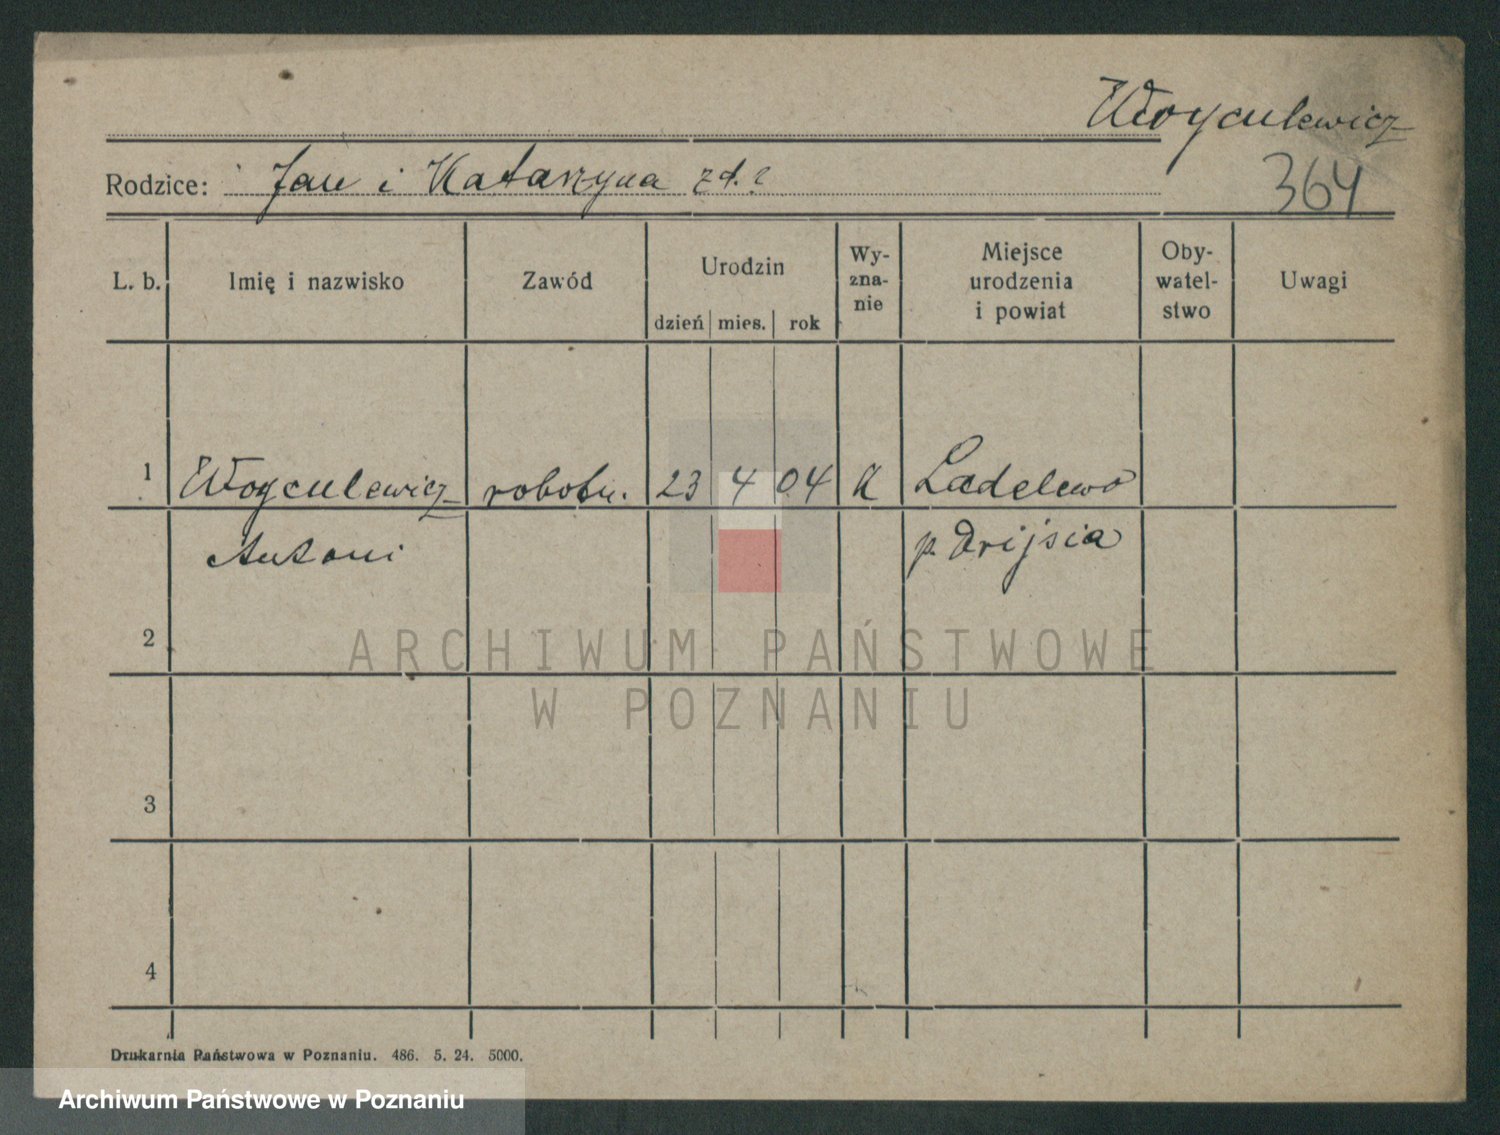 Woyculewicz
Rodzice: Jan i Katarzyna zd. ?
364
L. b. Imię i nazwisko Zawód Urodzin Wy- Miejsce Oby- Uwagi
zna- urodzenia watel-
nie i powiat stwo
dzień mies. rok
1 Woyculewicz robotn. 23 4 04 K Ladelewo
Antoni p. Drijsia
2
ARCHIWUM PAŃSTWOWE
W POZNANIU
3
4
Drukarnia Państwowa w Poznaniu. 486. 5. 24. 5000.
Archiwum Państwowe w Poznaniu